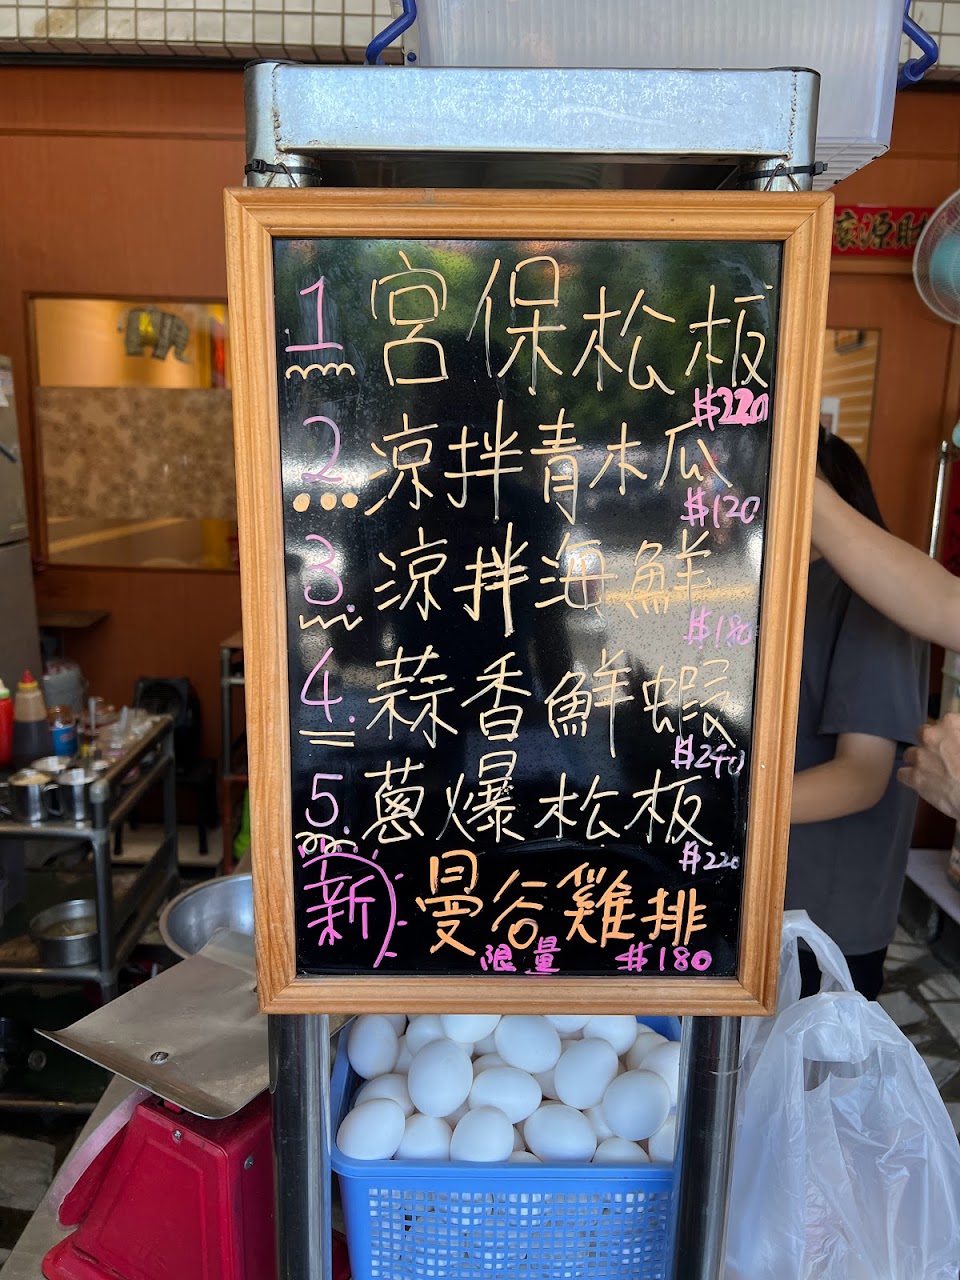 1 宮保松板
$220
2 涼拌青木瓜
$120
3. 涼拌海鮮
$180
4. 蒜香鮮蝦
$240
5. 蔥爆松板
$220
新 曼谷雞排
限量 $180
財源滾